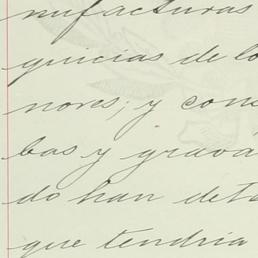 nufacturas
quicias de lo
nores; y con
bas y grava
do han det
que tendria